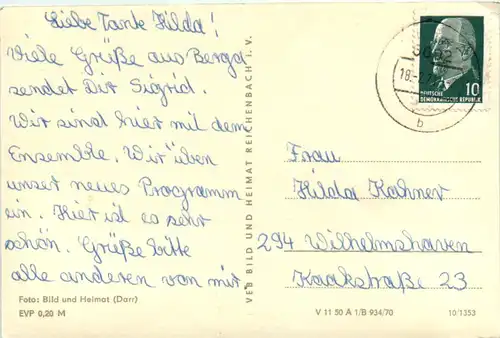 Liebe Tante Hilda!
Viele Grüße aus Berga
sendet Dir Sigrid.
Wir sind hier mit dem
Ensemble. Wir üben
unser neues Programm
ein. Hier ist es sehr
schön. Grüße bitte
alle anderen von mir.
Foto: Bild und Heimat (Darr)
EVP 0,20 M
VEB BILD UND HEIMAT REICHENBACH i. V.
10
DEUTSCHE
DEMOKRATISCHE REPUBLIK
b
Frau
Hilda Kahner
294 Wilhelmshaven
Kaakstraße 23
V 11 50 A 1/B 934/70
10/1353